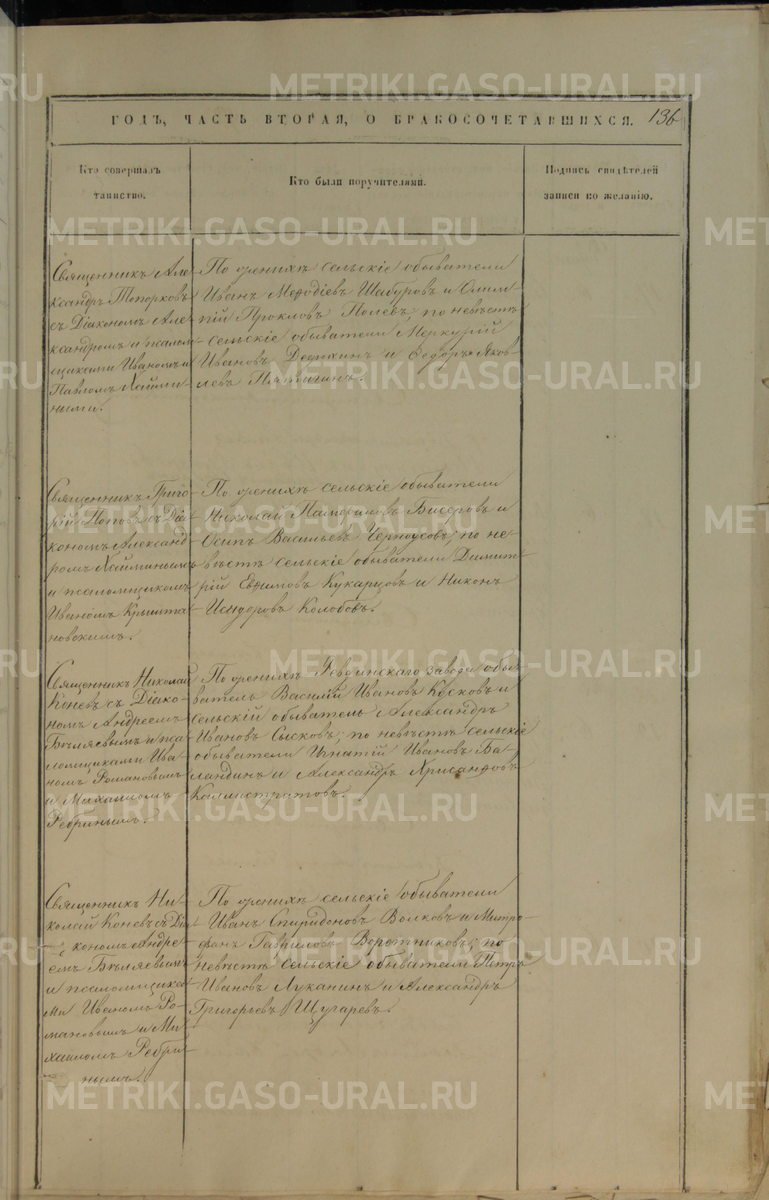 ГОДЪ, ЧАСТЬ ВТОРАЯ, О БРАКОСОЧЕТАВШИХСЯ. 136
Кто совершалъ
таинство.
Кто были поручителями.
Подпись свидѣтелей
записи по желанію.
Священникъ Але-
ксандръ Топорковъ
съ Діакономъ Але-
ксандромъ и псалом-
щиками Иваномъ и
Павломъ Хайми-
ными.
По женихѣ сельскіе обыватели
Иванъ Меѳодіевъ Шабуровъ и Олим-
пій Прокловъ Полевъ; по невѣстѣ
сельскіе обыватели Меркурій
Ивановъ и Ѳедоръ Яков-
левъ
Священникъ Григо-
рій Поповъ съ Діа-
кономъ Александ-
ромъ Хайминымъ
и псаломщикомъ
Иваномъ Крышта-
новскимъ.
По женихѣ сельскіе обыватели
Николай Памфиловъ Бисеровъ и
Осипъ Васильевъ Черноусовъ; по не-
вѣстѣ сельскіе обыватели Димит-
рій Евфимовъ Кукарцовъ и Никонъ
Исидоровъ Колобовъ.
Священникъ Николай
Коневъ съ Діако-
номъ Андреемъ
Бѣляевымъ и пса-
ломщиками Ива-
номъ Романовымъ
и Михаиломъ
Ребринымъ.
По женихѣ Ревдинскаго завода обы-
ватель Василій Ивановъ Кусковъ и
сельскій обыватель Александръ
Ивановъ Сысковъ; по невѣстѣ сельскіе
обыватели Игнатій Ивановъ Ба-
ландинъ и Александръ Хрисанфовъ
Каллистратовъ.
Священникъ Ни-
колай Коневъ съ Діа-
кономъ Андре-
емъ Бѣляевымъ
и псаломщика-
ми Иваномъ Ро-
мановымъ и Ми-
хаиломъ Ребри-
нымъ.
По женихѣ сельскіе обыватели
Иванъ Спиридоновъ Волковъ и Митро-
фанъ Гавриловъ Воротниковъ; по
невѣстѣ сельскіе обыватели Петръ
Ивановъ Луканинъ и Александръ
Григорьевъ Щугаревъ.
METRIKI.GASO-URAL.RU